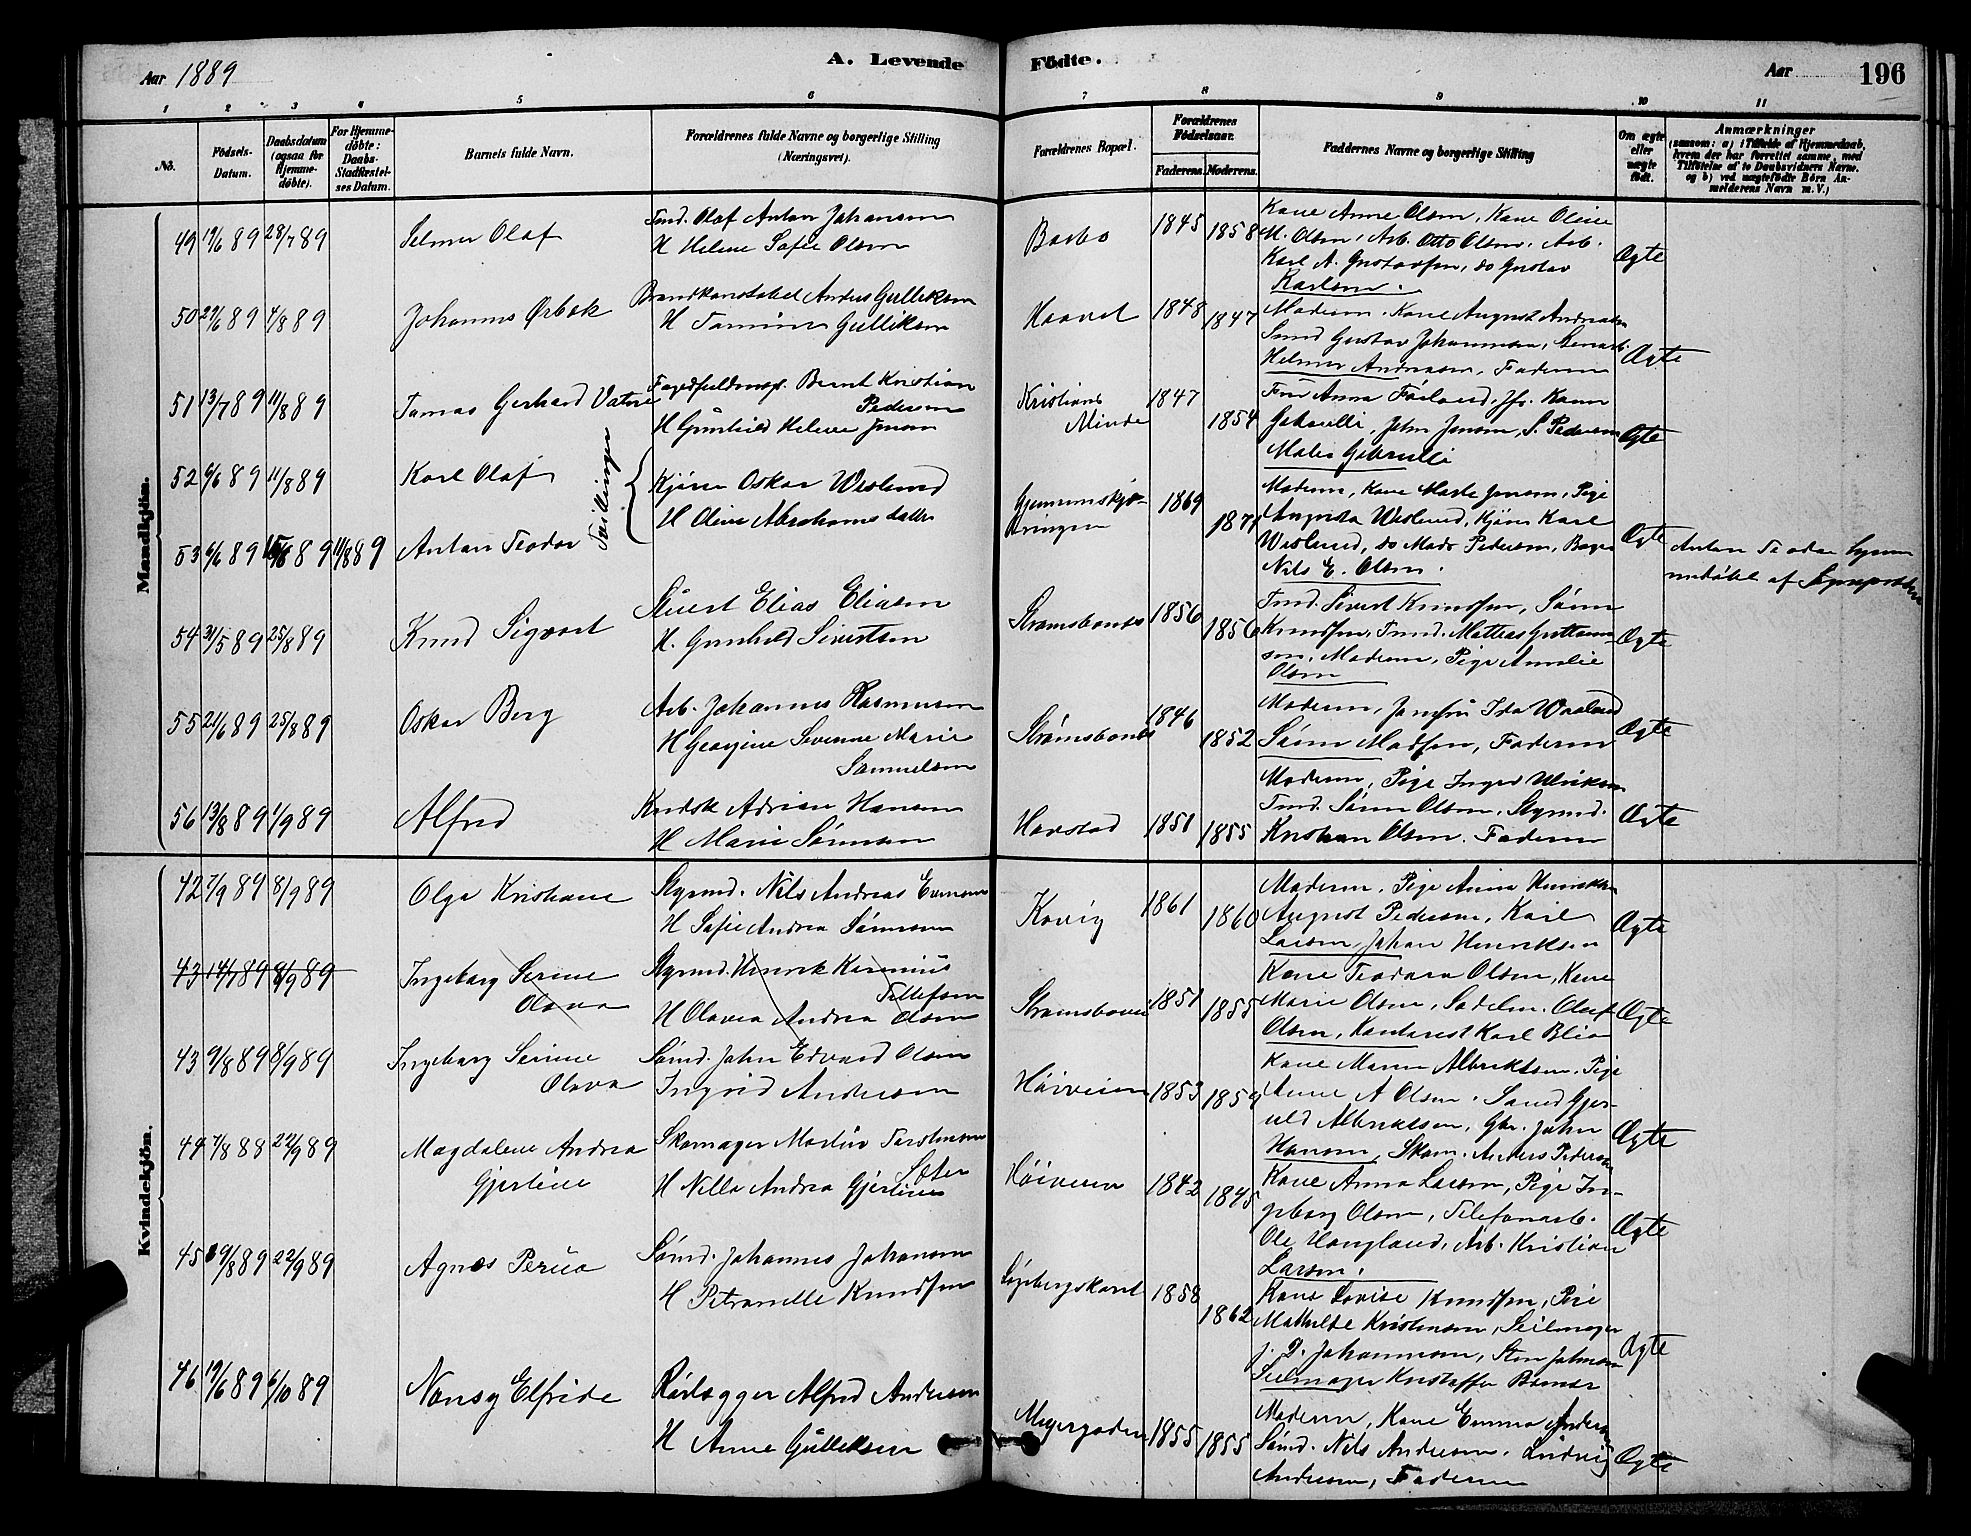 Aar 1889
A. Levende Födte.
Aar 196
1 2 3 4 5 6 7 8 9 10 11
No.
Födsels-Datum.
Daabsdatum (ogsaa for Hjemme-døbte).
For Hjemme-døbte: Daabs-Stadfæstel-ses Datum.
Barnets fulde Navn.
Forældrenes fulde Navne og borgerlige Stilling (Næringsvei).
Forældrenes Bopæl.
Forældrenes Födselsaar.
Faderens. Moderens.
Faddernes Navne og borgerlige Stilling
Om ægte eller uægte født.
Anmærkninger
(saasom: a) i Tilfælde af Hjemmedaab, hvem der har forrettet samme, med Tilføielse af to Daabsvidners Navne. og b) ved uægtefødte Børn An-melderens Navn m. V.)
Mandkjön.
49 17/6 89 28/7 89 Selmer Olaf
Tmd. Olaf Anton Johansen
H Helene Sofie Olsen
Barbo 1845 1858
Kone Anne Olsen, Kone Oline
M. Olsen, Arb. Otto Olsen, Arb.
Karl A. Gustavsen, do Gustav
Karlsen.
Ægte
50 27/6 89 4/8 89 Johannes Ørbæk
Brandkonstabel Anders Gulliksen
H Tomine Gulliksen
1848 1847
Moderen, Kone August Andreasen
Smed Gustav Johannesen,
Helmer Andreasen, Faderen
Ægte
51 13/7 89 11/8 89 Tomas Gerhard Vatne
Fogedfuldmægt. Bernt Kristian
Pedersen
H Gunhild Helene Jensen
Kristians
Minde
1847 1854
Fru Anna Förland, Jfr. Karen
Gabrielli, John Jensen, S. Pedersen
Gabrielli
Ægte
52 6/6 89 11/8 89 Karl Olaf
Tvillinger
Kjører Oskar Weslund
H Oline Abrahamsdatter
Gjennemskjæ-
ringen
1869 1871
Moderen, Kone Marte Jensen, Pige
Augusta Weslund, Kjører Karl
Weslund, do Mads Pedersen, Bager
Nils E. Olsen.
Ægte
53 6/6 89 15/6 89 11/8 89 Anton Teodor
Anton Teodor hjem-
medøbt af Sogneprästen
54 31/5 89 25/8 89 Knud Sigvart
Stuert Elias Eliasen
H. Gunhild Sivertsen
Strømsboneset 1856 1856
Tmd. Sivert Knudsen, Søren
Knudsen, Tmd. Mathias Guttorm-
sen, Moderen, Pige Amalie
Olsen
Ægte
55 21/6 89 25/8 89 Oskar Berg
Arb. Johannes Rasmussen
H Georgine Severine Marie
Samuelsen
Strømsbones 1846 1852
Moderen, Jomfru Ida Waaland
Søren Madsen, Faderen
Ægte
56 13/8 89 1/9 89 Alfred
Kudsk Adrian Hansen
H Marie Sørensen
Havstad 1851 1855
Moderen, Pige Inger Ulriksen
Tmd. Søren Olsen, Styrmd.
Kristian Olsen. Faderen
Ægte
Kvindekjön.
42 7/9 89 8/9 89 Olga Kristiane
Styrmd. Nils Andreas Evensen
H Sofie Andrea Sørensen
Kovig 1861 1860
Moderen, Pige Anna Henriksen
August Pedersen, Karl
Larsen, Johan Henriksen
Ægte
43 14/7 89 8/9 89 Ingeborg Serine
Olava
Styrmd. Henrik Rasmus
Tellefsen
H Olava Andrea Olsen
Strømsboveien 1851 1855
Kone Teodora Olsen, Kone
Marie Olsen, Sadelm. Oluf
Olsen, Kontorist Karl Blix
Ægte
43 9/8 89 8/9 89 Ingeborg Serine
Olava
Sömd. John Edvard Olsen
Ingrid Andersen
Høiveien 1853 1859
Kone Maren Albriktsen, Pige
Anne A Olsen, Sömd Gjer-
uld Albriktsen, Gbr. John
Hansen, Skom. Anders Pedersen
Ægte
44 7/8 88 22/9 89 Magdalene Andrea
Gjertine
Skomager Martin Torstensen
Sæter
H Nilla Andrea Gjertine
Høiveien 1842 1845
Kone Anna Larsen, Pige In-
geborg Olsen, Telefonarb.
Ole Haugland, Arb. Kristian
Larsen.
Ægte
45 19/8 89 22/9 89 Agnes Perua
Sömd. Johannes Johansen
H Petronelle Knudsen
1858 1862
Kone Lovise Knudsen, Pige
Mathilde Kristensen, Seilmager
J. D. Johannesen, Sten Johnsen
Seilmager Kristoffer
Ægte
46 19/6 89 6/10 89 Nansy Elfride
Rørlægger Alfred Andersen
H Anne Gulliksen
Meyergaden 1855 1855
Moderen, Kone Emma Anders
Sömd. Nils Andersen, Ludvig
Andersen, Faderen
Ægte